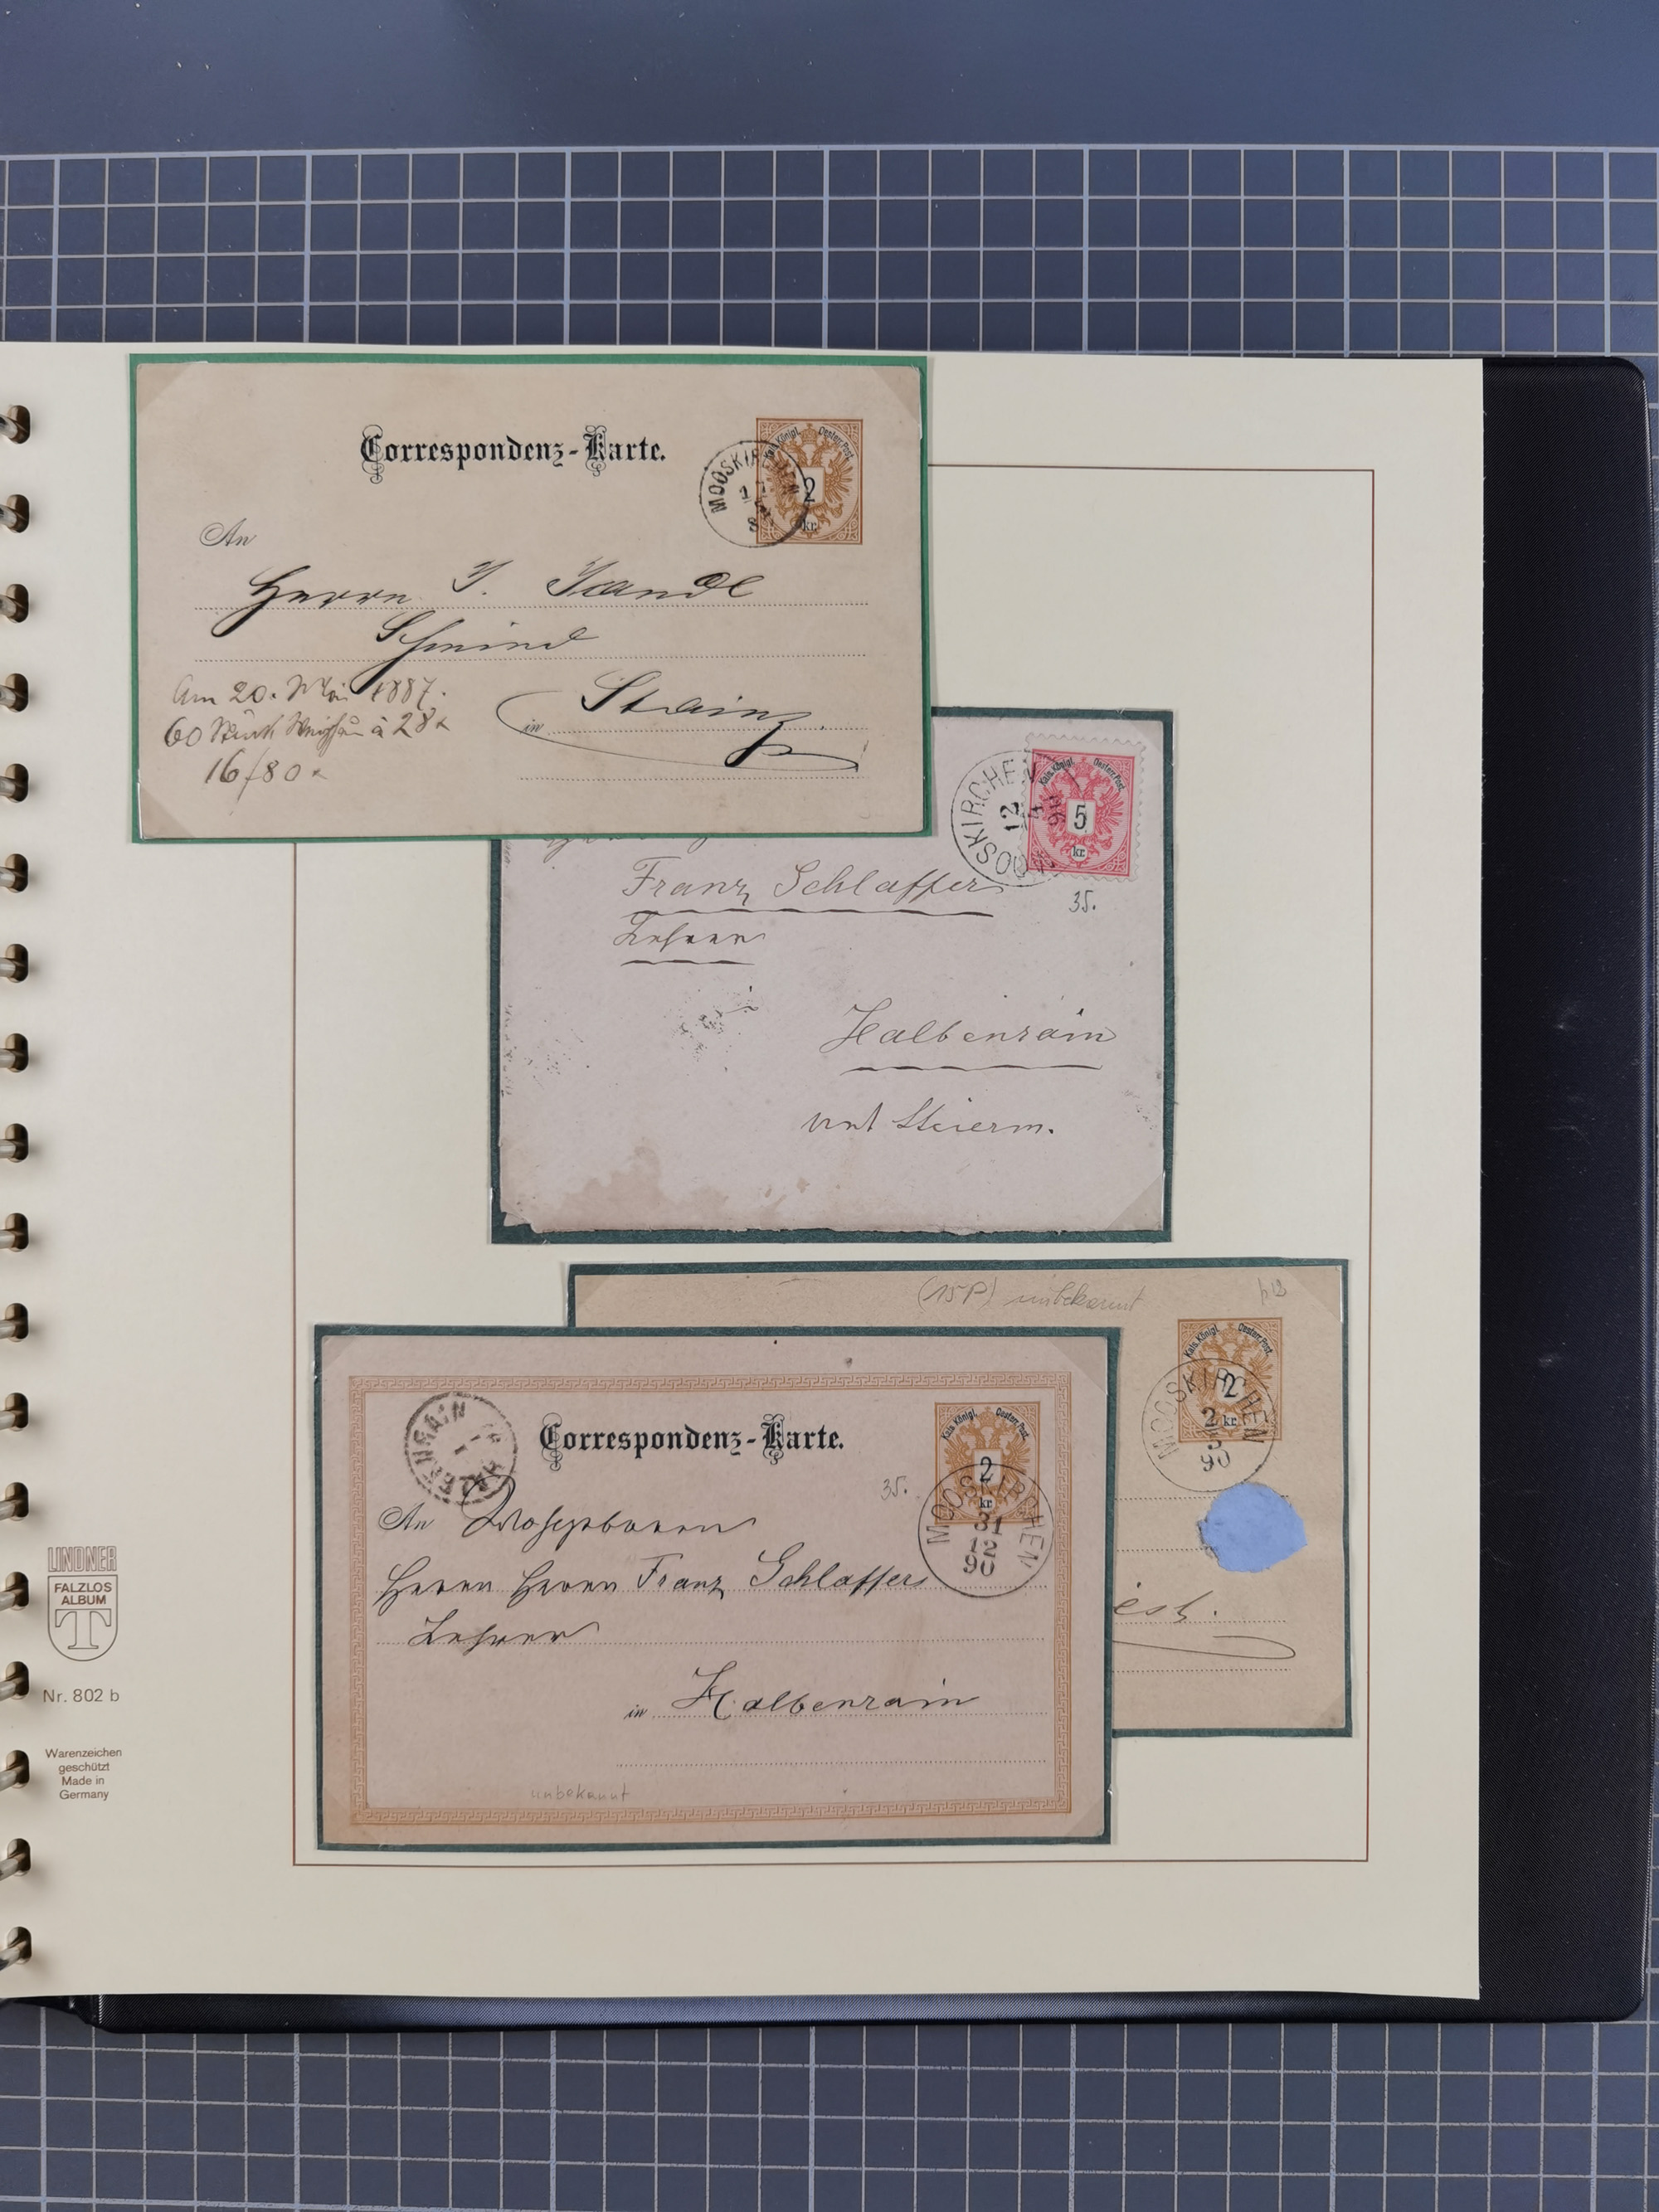 Correspondenz-Karte.
Kais. Königl. Oesterr. Post.
2
kr.
MOOSKIRCHEN
An
Herrn J. Jandl
Schmied
in Stainz
Am 20. Mai 1887.
60 Stück à 28 x
16/80 x
MOOSKIRCHEN
12
4
90
Kais. Königl. Oesterr. Post.
5
kr.
35.
Franz Schlaffer
Lehrer
in
Halbenrain
unt Steierm.
(15P) unbekannt
p12
Kais. Königl. Oesterr. Post.
2
kr.
MOOSKIRCHEN
2
3
90
est.
HALBENRAIN
Correspondenz-Karte.
Kais. Königl. Oesterr. Post.
2
kr.
35.
MOOSKIRCHEN
31
12
90
An Wohlgeboren
Herrn Herrn Franz Schlaffer
Lehrer
in Halbenrain
unbekannt
LINDNER
FALZLOS
ALBUM
T
Nr. 802 b
Warenzeichen
geschützt
Made in
Germany